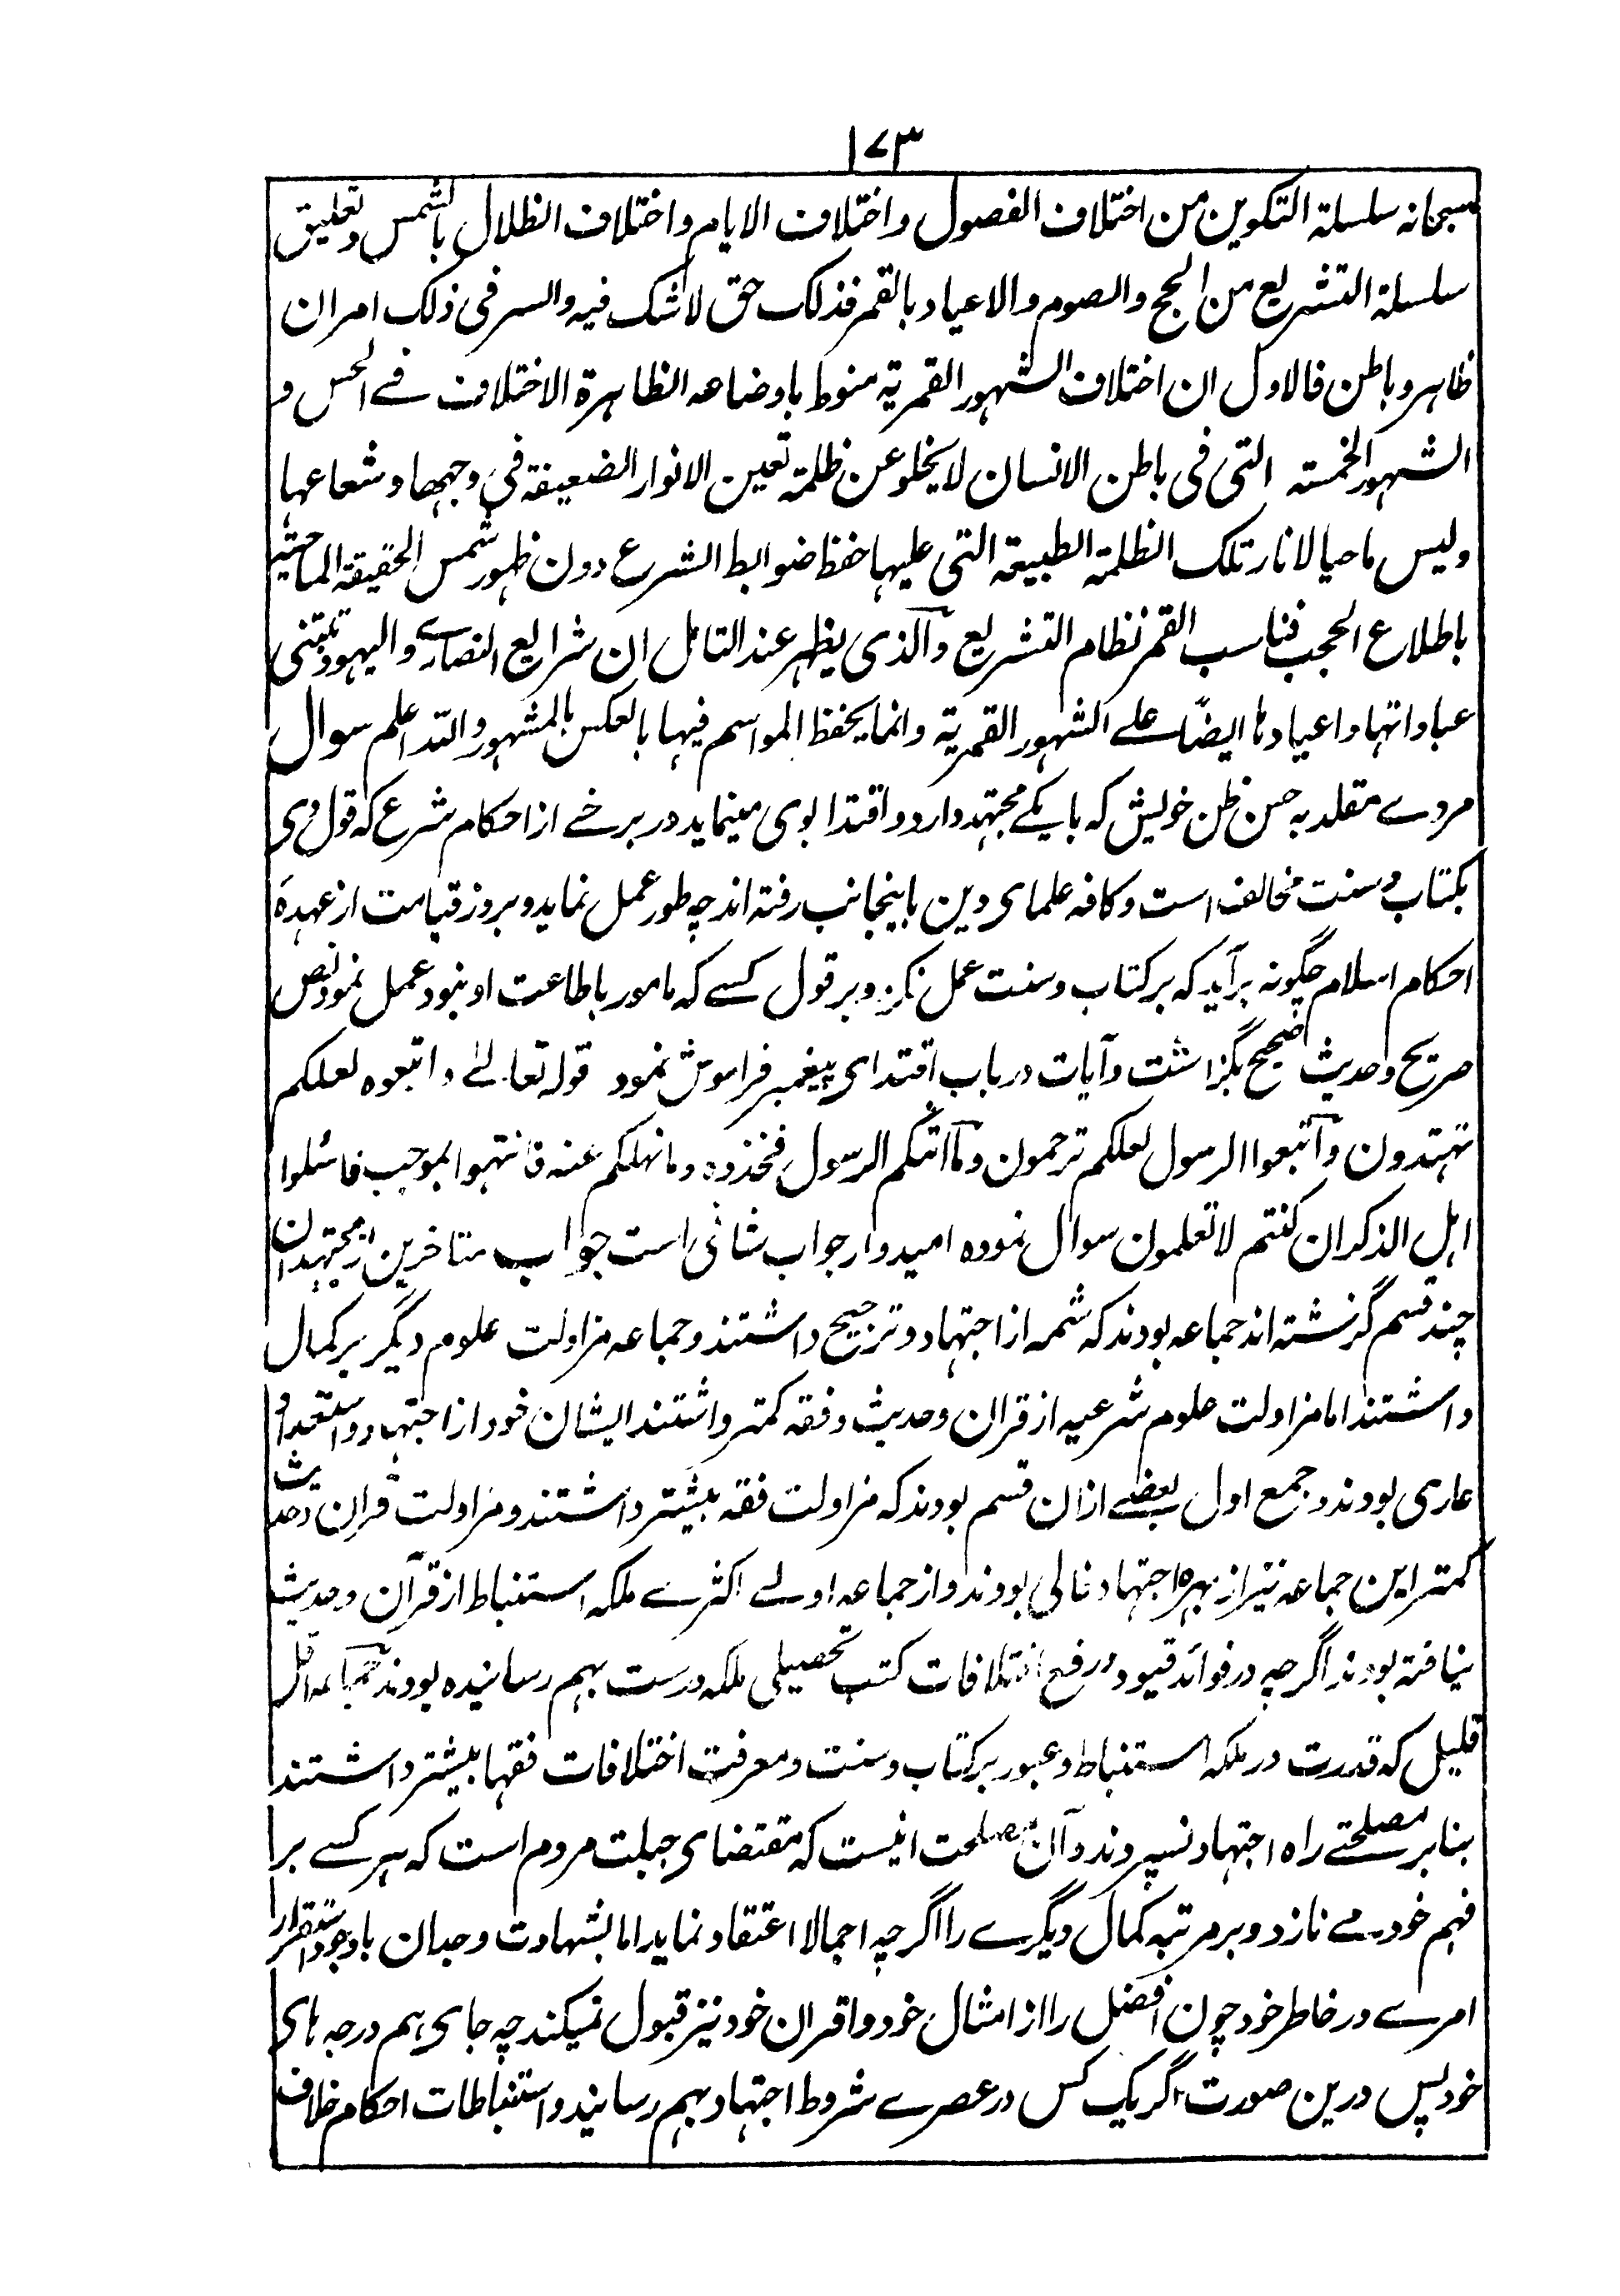 ۱۷۳
سبحانه سلسلة التكوين من اختلاف الفصول واختلاف الايام واختلاف الظلال بالشمس وتعليق
سلسلة التشريع من الحج والصوم والاعياد بالقمر فذلك حق لا شك فيه والسر فى ذلك امران
ظاهر وباطن فالاول ان اختلاف الشهور القمرية منوط باوضاعه الظاهرة الاختلاف فے الحس و
الشهور الخمسته التى فى باطن الانسان لا يخلو عن ظلمة تعين الانوار الضعيفة فى وجهها وشعاعها
وليس ماحيا لاثار تلك الظلمة الطبيعة التى عليها حفظ ضوابط الشرع دون ظهور شمس الحقيقة الماحية
باطلاع الحجب فناسب القمر نظام التشريع والذى يظهر عند التامل ان شرايع النصارے واليهود تبتنى
عباداتها واعيادها ايضًا علے الشهور القمرية وانما يحفظ المواسم فيها بالعكس بالمشهور والله اعلم سوال
مردے مقلد به حسن ظن خویش که بایکے مجتهد دارد و اقتدا بوی مینماید در برخے از احکام شرع که قول وی
بکتاب و سنت مخالف است و کافه علمای دین باینجانب رفته اند چه طور عمل نماید و بروز قیامت از عهدهٔ
احکام اسلام چگونه برآید که بر کتاب و سنت عمل نکرد و بر قول کسے که مامور باطاعت او نبود عمل نمود نص
صریح و حدیث صحیح بگزاشت و آیات در باب اقتدای پیغمبر فراموش نمود قوله تعالے واتبعوه لعلكم
تهتدون وآتبعوا الرسول لعلكم ترحمون ومآ اتٰكم الرسول فخذوه وما نهٰكم عنه فانتهوا بموجب فاسئلوا
اهل الذكر ان كنتم لا تعلمون سوال نموده امیدوار جواب شافی است جواب متاخرین از مجتهدان
چند قسم گزشته اند جماعه بودند که شمه از اجتهاد و ترجیح داشتند و جماعه مزاولت علوم دیگر بر کمال
داشتند اما مزاولت علوم شرعیه از قران و حدیث و فقه کمتر داشتند ایشان خود از اجتهاد و استعداد
عاری بودند و جمع اول بعضے ازان قسم بودند که مزاولت فقه بیشتر داشتند و مزاولت قران و حدیث
کمتر این جماعه نیز از بهرهٔ اجتهاد خالی بودند و از جماعه اولے اکثرے ملکه استنباط از قرآن و حدیث
نیافته بودند اگرچه در فوائد قیود و رفع اختلافات کتب تحصیلی ملکه درست بهم رسانیده بودند جماعه اقل
قلیل که قدرت در ملکه استنباط و عبور بر کتاب و سنت و معرفت اختلافات فقها بیشتر داشتند
بنابر مصلحتے راه اجتهاد نسپردند و آن مصلحت اینست که مقتضای جبلت مردم است که هر کسے برا
فهم خود مے نازد و بر مرتبه کمال دیگرے را اگرچه اجمالا اعتقاد نماید اما بشهادت وجدان باوجود استقرار
امرے در خاطر خود چون افضل را از امثال خود و اقران خود نیز قبول نمیکند چه جای هم درجه های
خود پس درین صورت اگر یک کس در عصرے شروط اجتهاد بهم رسانید و استنباطات احکام خلاف